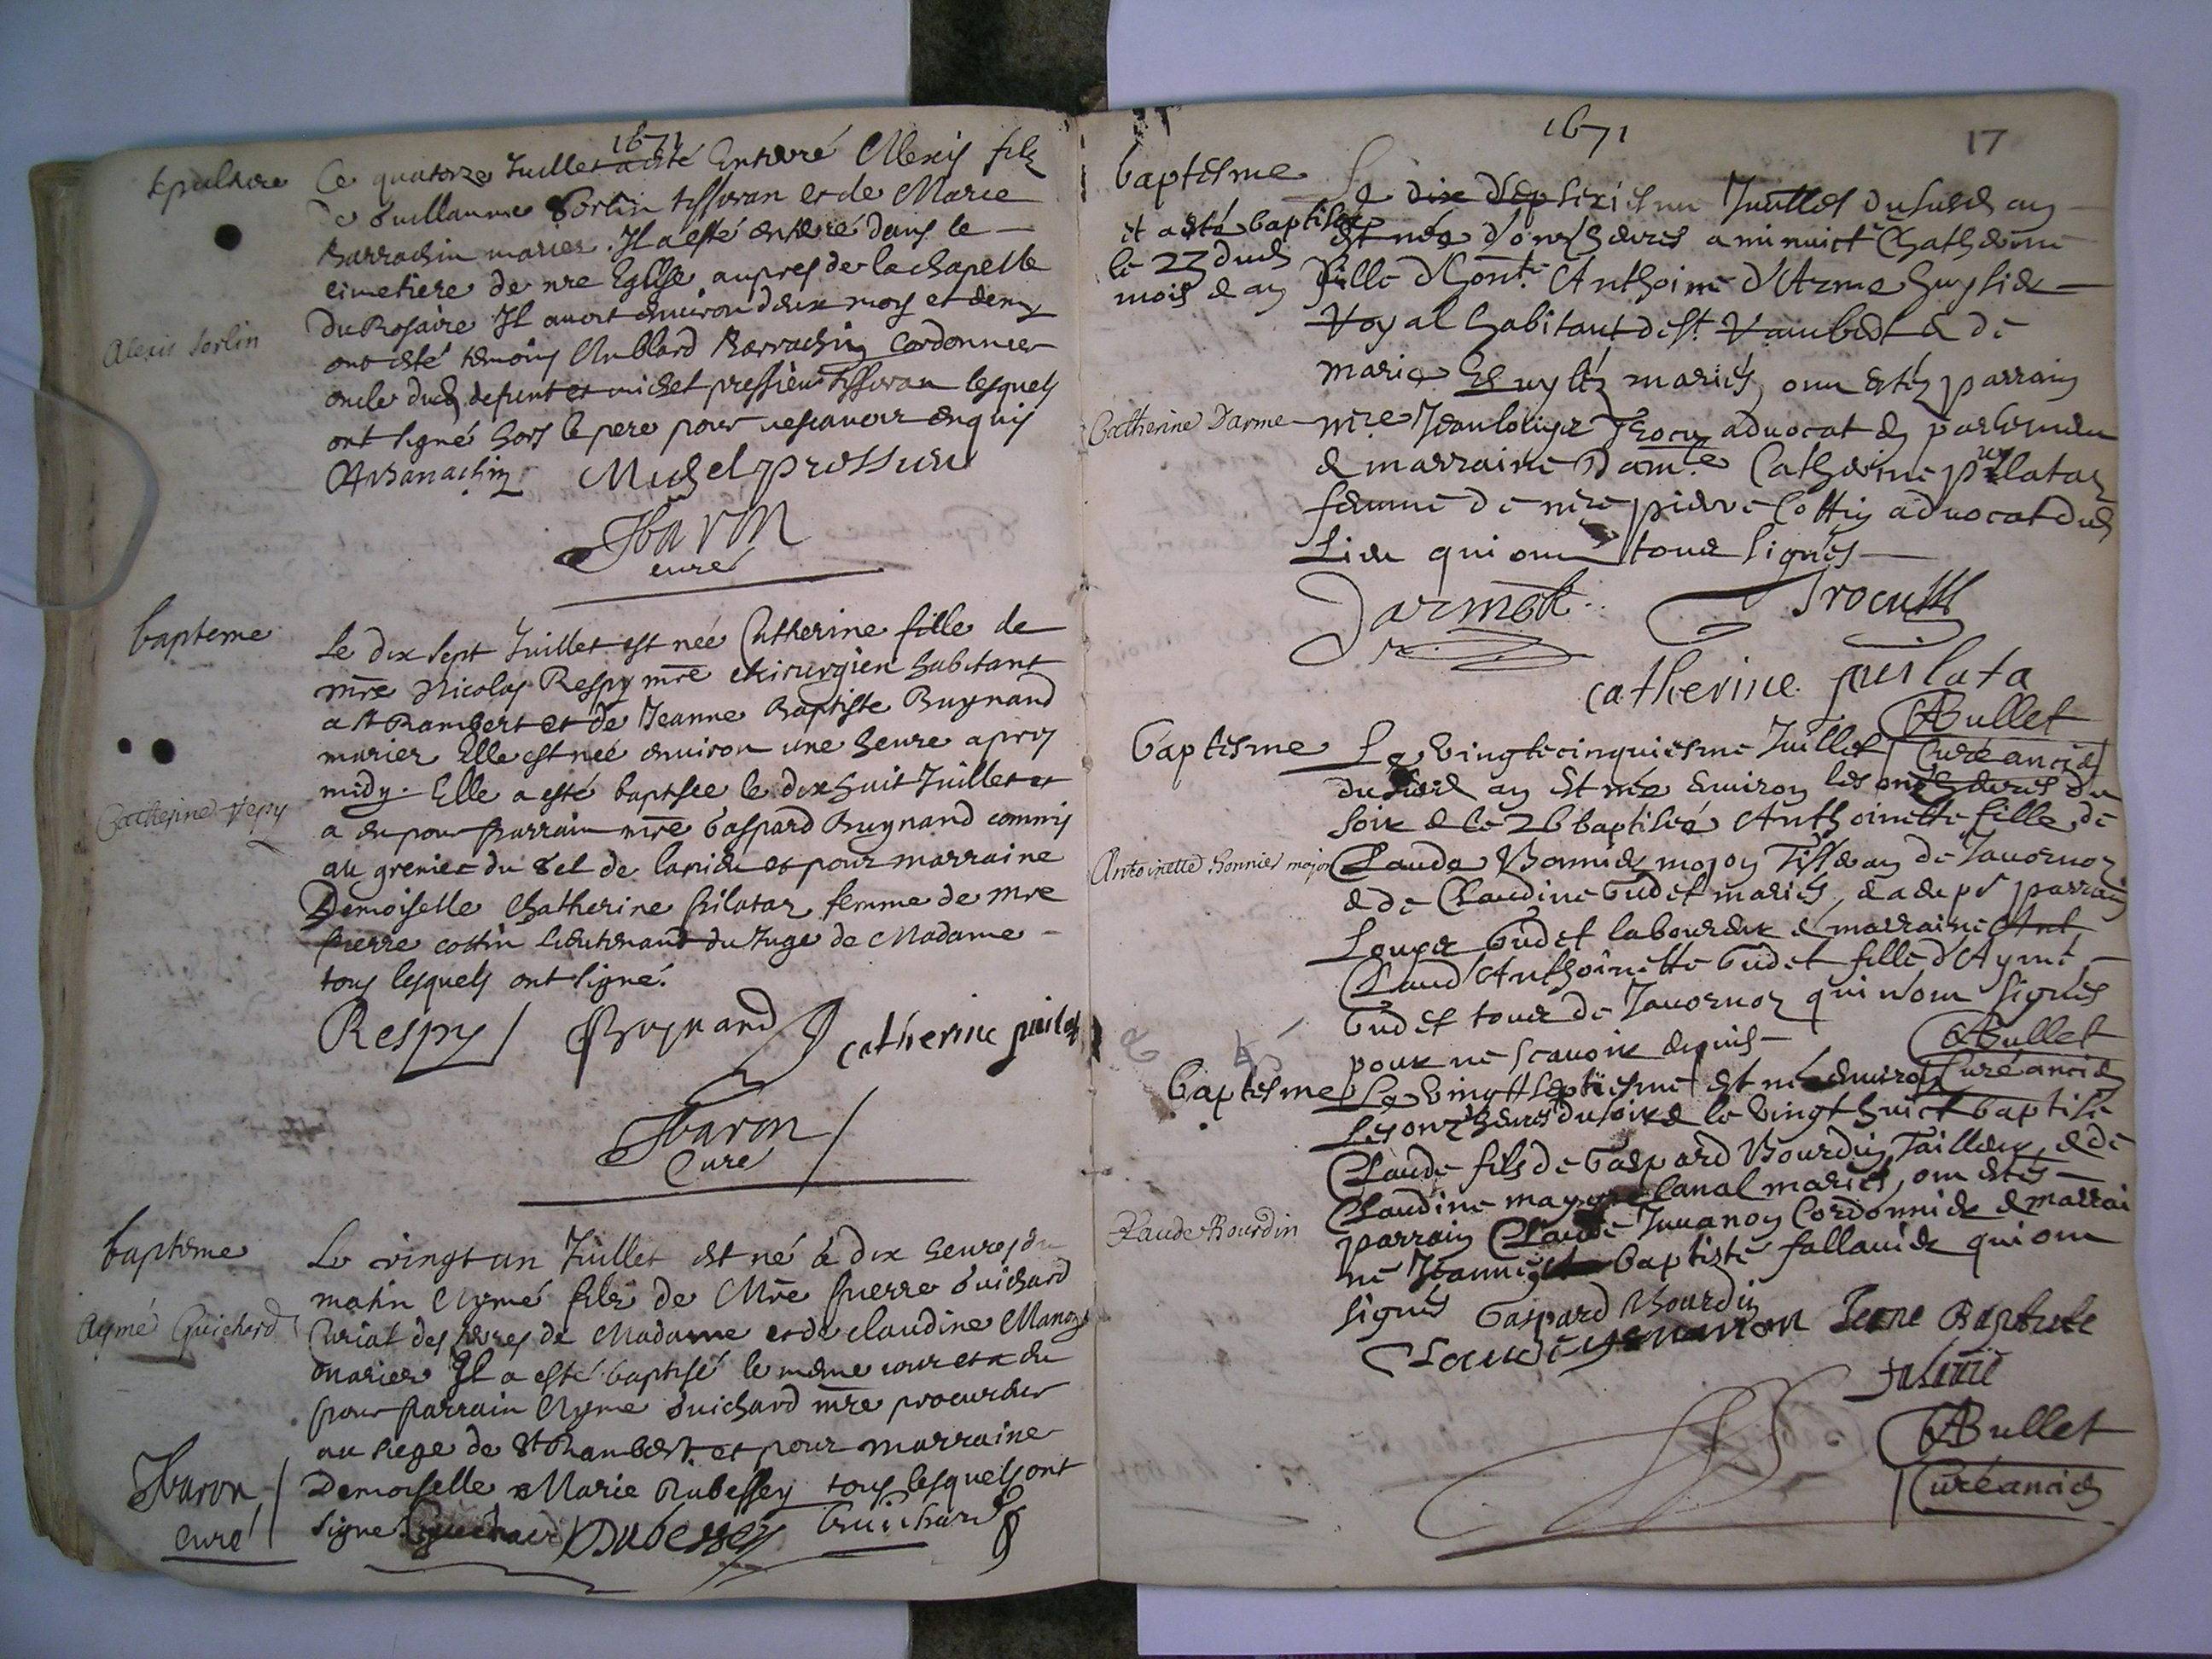 1671
sepulture
Ce quatorze Juillet a esté Enterré Alexis filz
de Guillaume Sorlin tissoran et de Marie
Barrachin mariez. Il a esté enterré dans le
cimetiere de nre Eglise aupres de la chapelle
Alexis Sorlin
du Rosaire Il avoit environ deux moys et demy
ont esté témoins Anblard Barrachin Cordonnier
oncle dud defunt et michel pressieu Tissoran lesquels
ont signé hors le pere pour ne scavoir enquis
ABarrachin Michel pressieu
JBaron
curé
bapteme
Le dix sept Juillet est née Catherine fille de
mre Nicolas Respy mre chirurgien habitant
a St Rambert et de Jeanne Baptiste Bugnand
mariez Elle est née environ une heure apres
midy. Elle a esté baptisee le dix huit Juillet et
Catherine Repy
a eu pour parrain mre Gaspard Bugnand commis
au grenier du sel de et pour marraine
Demoiselle Chatherine pilataz femme de mre
pierre cottin Lieutenant du Juge de Madame
tous lesquels ont signé.
Respy Bugnand catherine
JBaron
Curé
bapteme
Le vingt un Juillet est né à dix heures du
matin Aymé filz de Mre pierre Guichard
Aymé Guichard
Curial des terres de Madame et de claudine
mariez Il a esté baptisé le meme jour et a eu
pour parrain Ayme Guichard mre procureur
au siege de St Rambert et pour marraine
Demoiselle Marie Dubessey tous lesquels ont
signé Guichard Dubessey Guichard
JBaron
curé
1671
17
baptesme
Le dix septiesme Juillet du susd an
et a esté baptisée
le 23 dud
mois & an
est née d'onze heures a minuict Chatherine
fille d'hont. Anthoine d'Arme huysier
Royal habitant de St. Rambert & de
marie mariés, ont estés parrain
Catherine Darme
mre Jean louys Trocu advocat en parlement
& marraine Dam.e Catherine pilataz
femme de mre pierre Cottin advocat dud
Lieu qui ont tous signés
Darmet Trocu
catherine
ABullet
Curé ancien
baptesme
Le vingt cinquiesme Juillet
dususd an est née environ les onze heures du
soir & le 26 baptiseé Anthoinette fille de
Antoinette Bonnier
Claude Bonnier mojon Tisseran de Javornoz
& de Claudine Gudet mariés, & a eu pr parrain
Louys Gudet laboureur & marraine Ant
Claud' Anthoinette Gudet fille d'Aymé
Gudet tous de Javornoz qui n'ont signés
pour ne scavoir enquis
ABullet
Curé ancien
baptesme
Le vingt septiesme est né environ
Les onze heures du soir & le vingt huict baptisé
Claude fils de Gaspard Bourdin Tailleur, & de
Claudine Canal mariés, ont estés
Claude Bourdin
parrain Claude Juvanon Cordonnier & marrai
ne Jeanne Baptiste fallavier qui ont
signés Gaspard Bourdin
Claude Jeane Baptiste
ABullet
Curé ancien